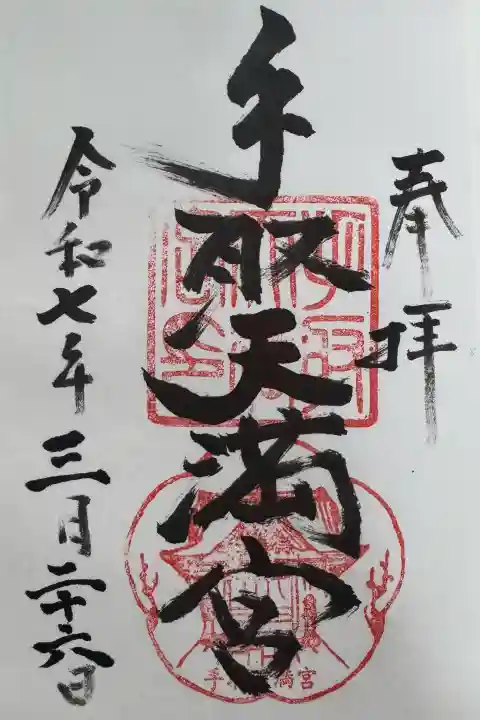 奉拝
手取天満宮
令和七年三月二十六日
手取天満宮